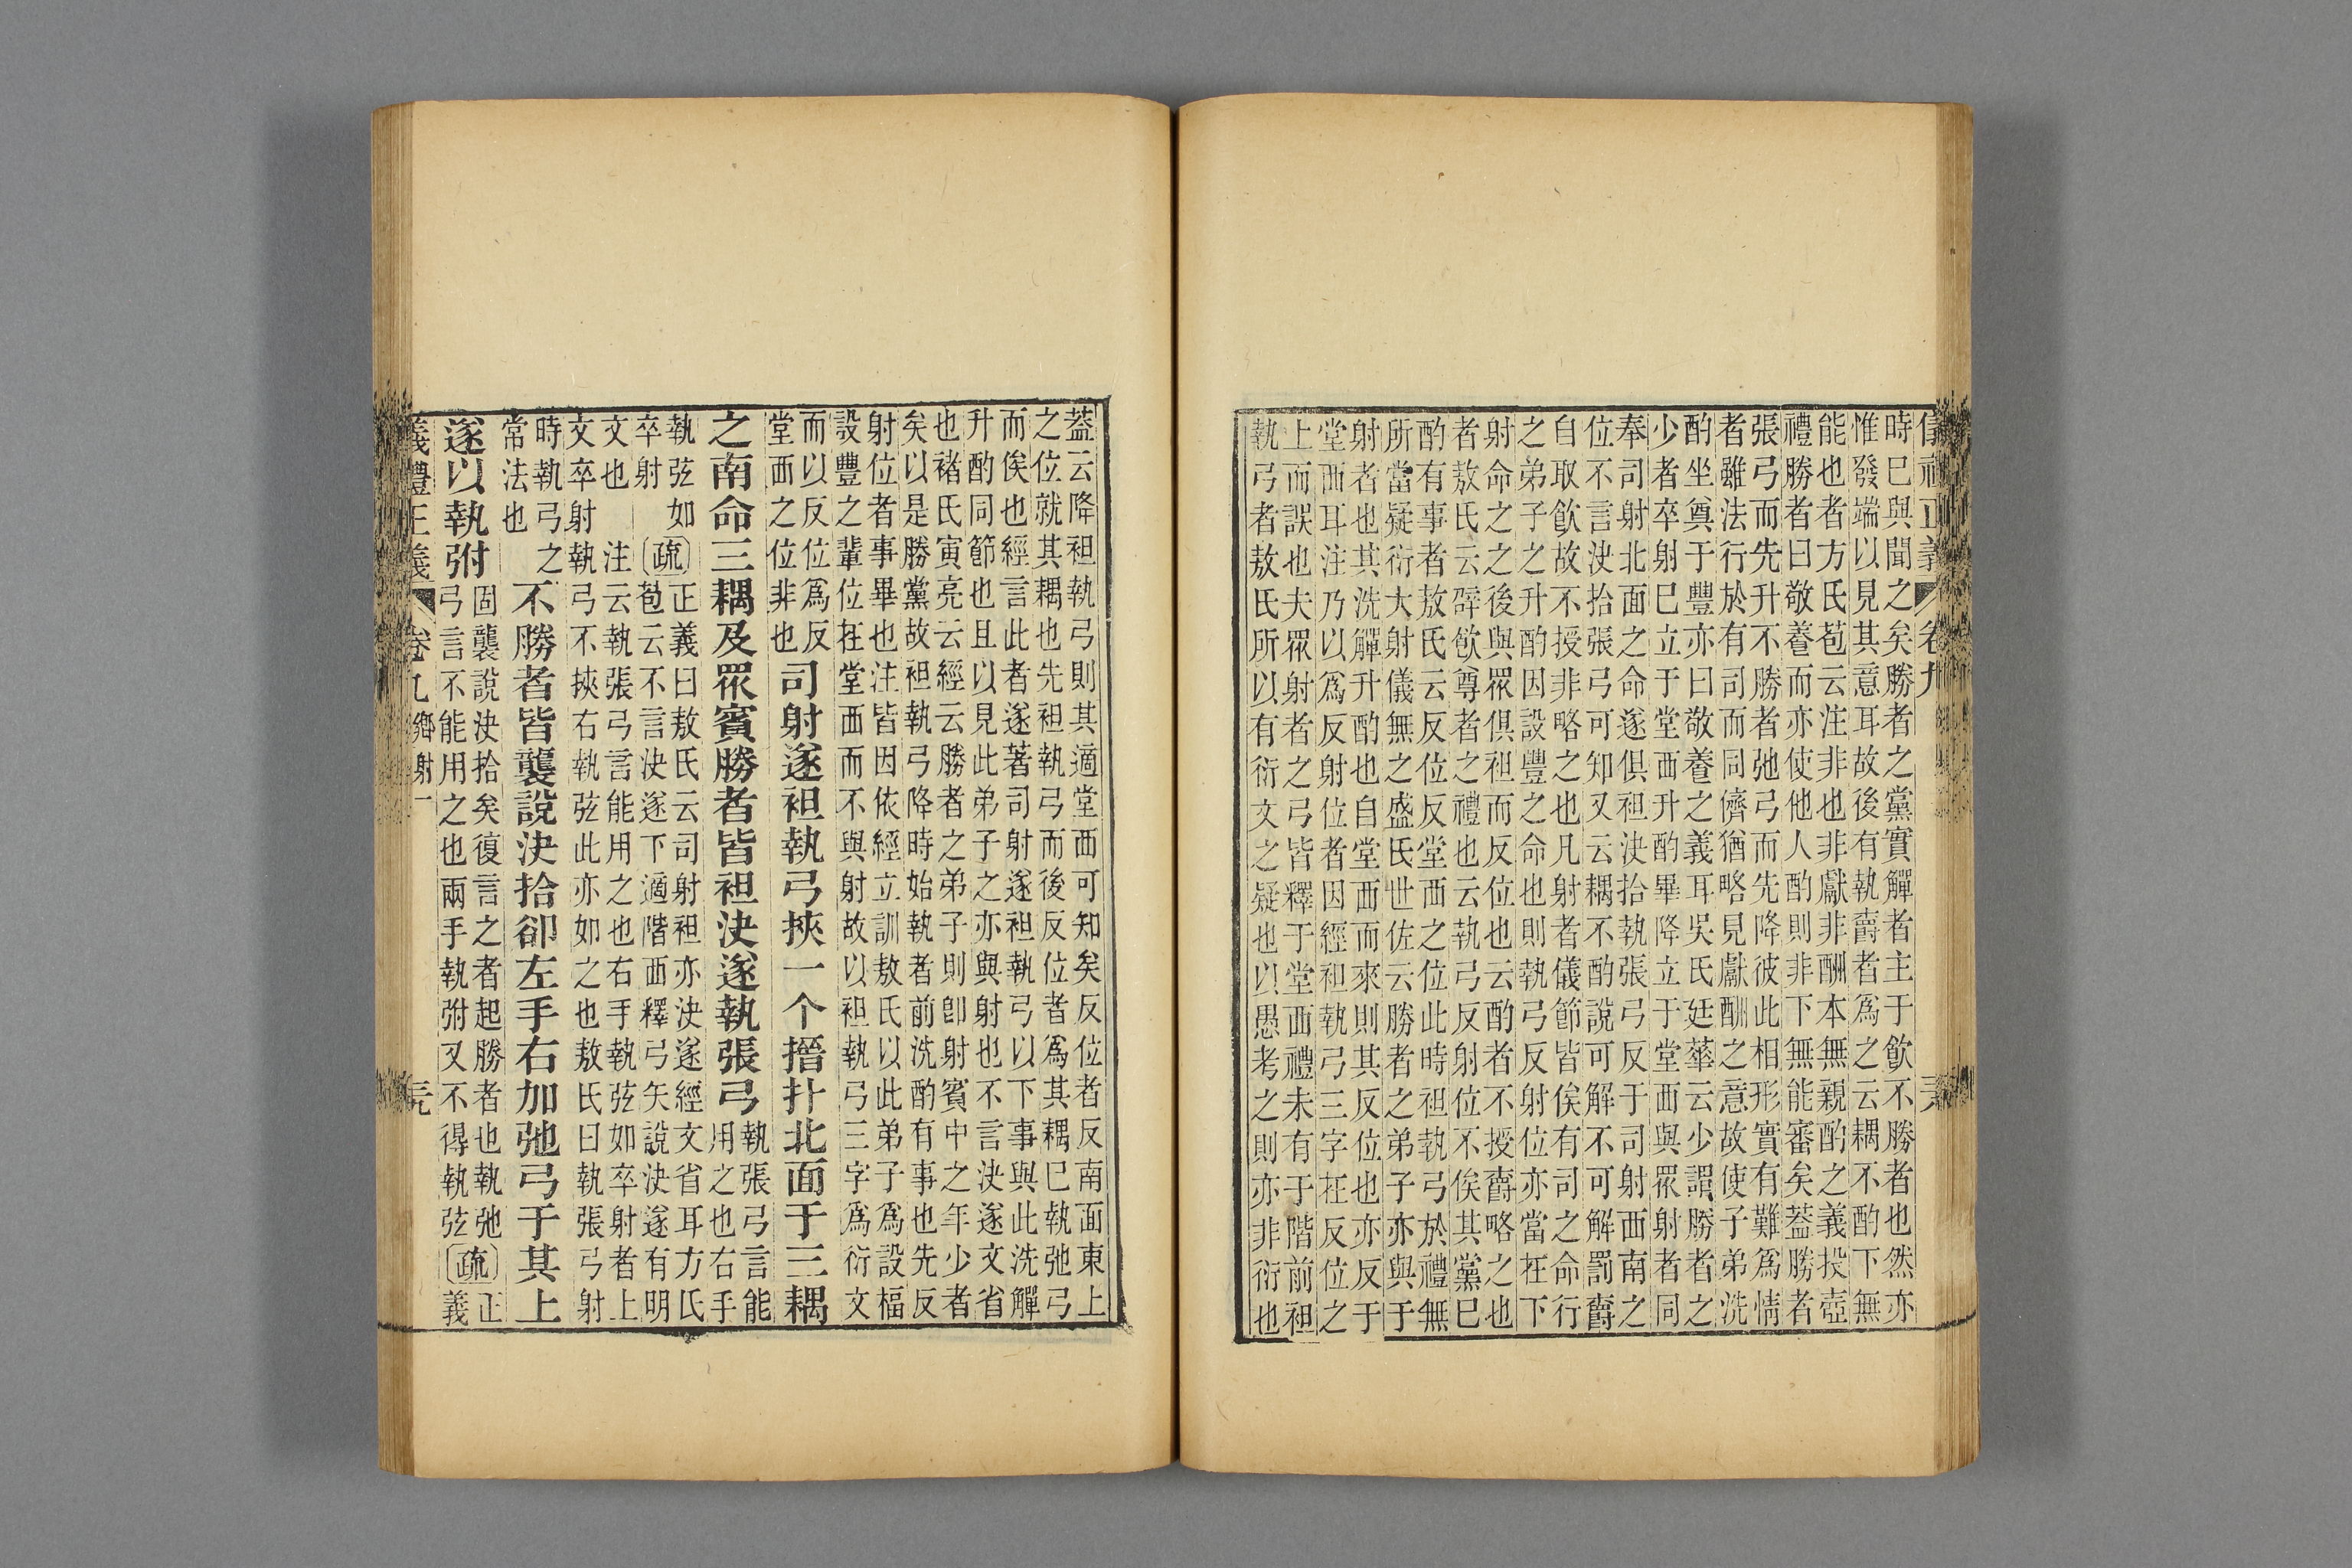 儀禮正義 卷九
時已與聞之矣勝者之黨實觶者主于飲不勝者也然亦
惟發端以見其意耳故後有執爵者爲之云耦不酌下無
能也者方氏苞云注非也非獻非酬本無親酌之義投壺
禮勝者曰敬養而亦使他人酌則非下無能審矣蓋勝者
張弓而先升不勝者弛弓而先降彼此相形實有難爲情
者雖法行於有司而同儕猶略見獻酬之意故使子弟洗
酌坐奠于豐亦曰敬養之義耳吳氏廷華云少謂勝者之
少者卒射巳立于堂西升酌畢降立于堂西與眾射者同
奉司射北面之命遂俱袒決拾執張弓反于司射西南之
位不言決拾張弓可知又云耦不酌說可解不可解罰爵
自取飲故不授非略之也凡射者儀節皆俟有司之命行
之弟子之升酌因設豐之命也則執弓反射位亦當在下
射命之之後與眾俱袒而反位也云酌者不授爵略之也
者敖氏云辟飲尊者之禮也云執弓反射位不俟其黨巳
酌有事者敖氏云反位反堂西之位此時袒執弓於禮無
所當疑衍大射儀無之盛氏世佐云勝者之弟子亦與于
射者也其洗觶升酌也自堂西而來則其反位也亦反于
堂西耳注乃以爲反射位者因經袒執弓三字在反位之
上而誤也夫眾射者之弓皆釋于堂西禮未有于階前袒
執弓者敖氏所以有衍文之疑也以愚考之則亦非衍也
蓋云降袒執弓則其適堂西可知矣反位者反南面東上
之位就其耦也先袒執弓而後反位者爲其耦巳執弛弓
而俟也經言此者遂著司射遂袒執弓以下事與此洗觶
升酌同節也且以見此弟子之亦與射也不言決遂文省
也褚氏寅亮云經云勝者之弟子則卽射賓中之年少者
矣以是勝黨故袒執弓降時始執者前洗酌有事也先反
射位者事畢也注皆因依經立訓敖氏以此弟子爲設楅
設豐之輩位在堂西而不與射故以袒執弓三字爲衍文
而以反位爲反
堂西之位非也
司射遂袒執弓挾一个搢扑北面于三耦
之南命三耦及眾賓勝者皆袒決遂執張弓
執張弓言能
用之也右手
執弦如
卒射
〔疏〕
正義曰敖氏云司射袒亦決遂經文省耳方氏
苞云不言決遂下適階西釋弓矢說決遂有明
文也 注云執張弓言能用之也右手執弦如卒射者上
文卒射執弓不挾右執弦此亦如之也敖氏曰執張弓射
時執弓之
常法也
不勝者皆襲說決拾卻左手右加弛弓于其上
遂以執弣
固襲說決拾矣復言之者起勝者也執弛
弓言不能用之也兩手執弣又不得執弦
〔疏〕
正
義
義禮正義 卷九鄉射一